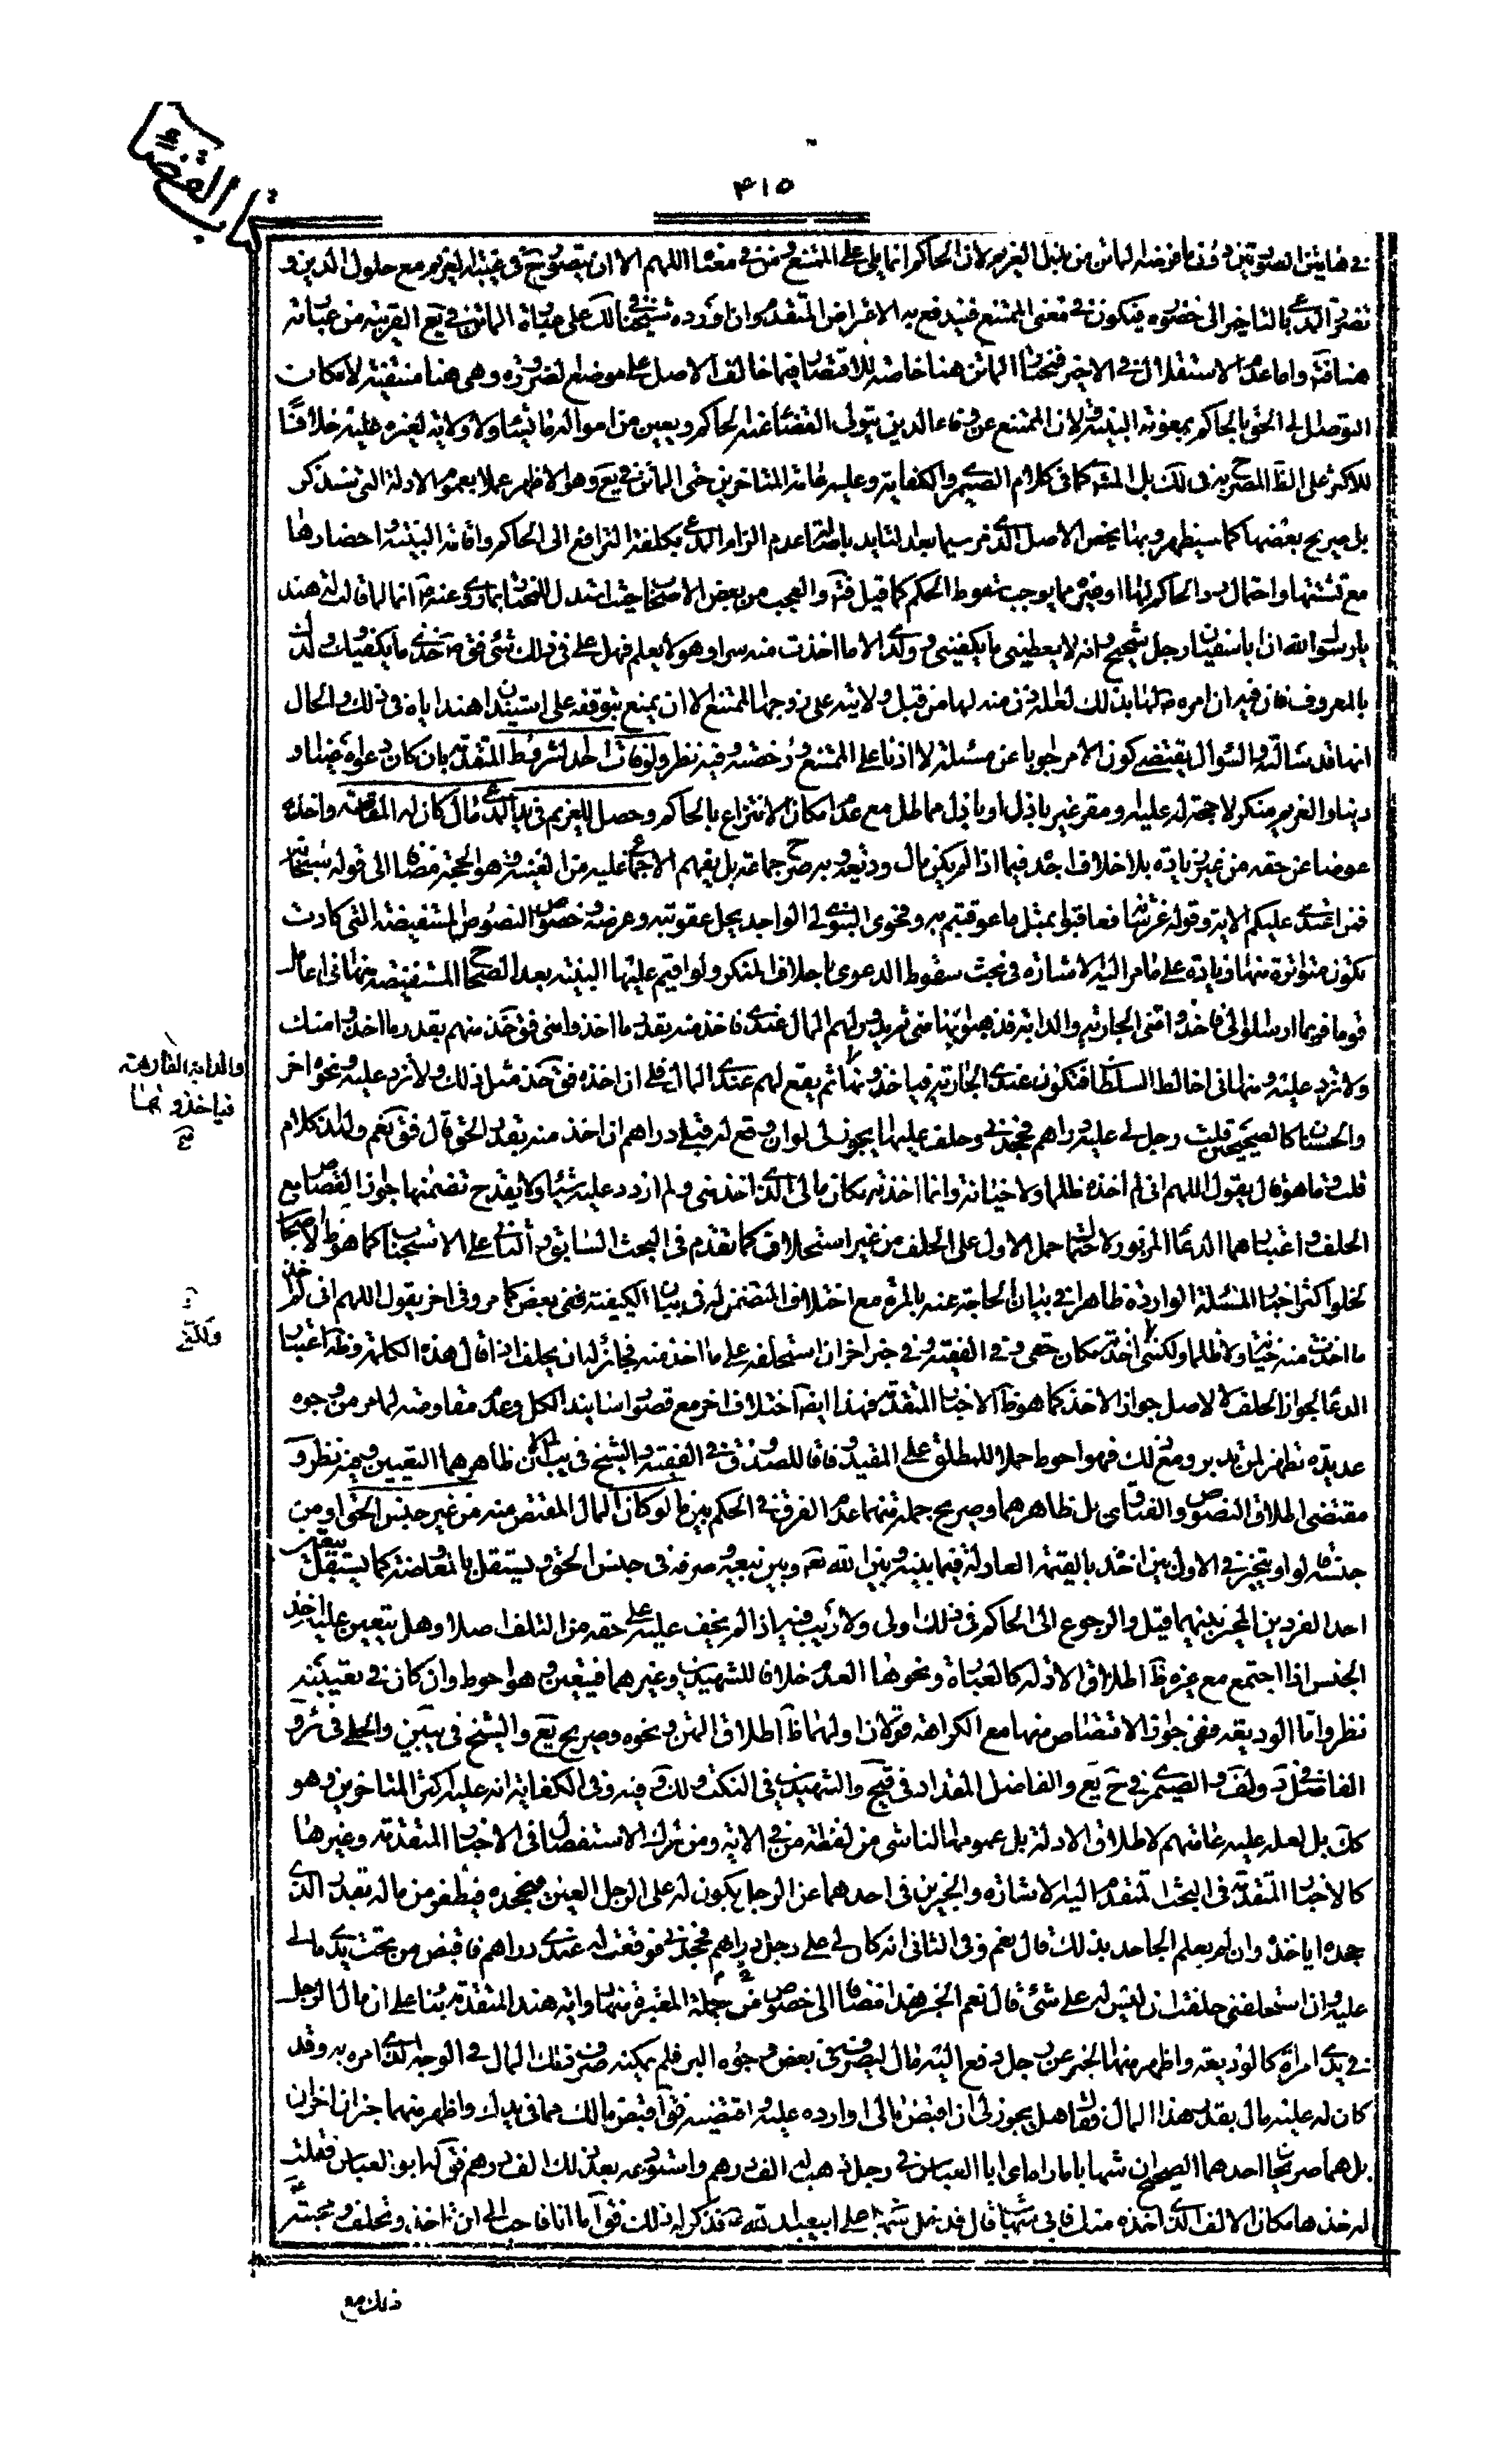 كتاب القضاء
٤١٥
في هاتين الصورتين وفيما فرضه الماتن من قبل الغريم لان الحاكم انما يلي على الممتنع ومن في معناه اللهم الا ان يتصور ح في غيبة الغريم مع حلول الدين و
تضرر المدعي بالتاخير الى حضوره فيكون في معنى الممتنع فيندفع به الاعتراض المتقدم وان اورده شيخنا في لك على عبارة الماتن في يع القريبة من عبارته
هنا فت واما عدم الاستقلال في الاخير فمختار الماتن هنا خاصة للاقتصار فيما خالف الاصل على موضع الضرورة وهي هنا منتفية لامكان
التوصل الى الحق بالحاكم بمعونة البينة ولان الممتنع عن وفاء الدين يتولى القضاء عنه الحاكم ويعين من امواله ما يشاء ولا ولاية لغيره عليه خلافا
للاكثر على الظ المصرح به في لك بل المشهور كما في كلام الصيمري والكفاية وعليه عامة المتاخرين حتى الماتن في يع وهو الاظهر عملا بعموم الادلة التي ستذكر
بل صريح بعضها كما سيظهر وبها يخص الاصل الذي مر سيما بعد التايد باصالة عدم الزام المدعي بكلفة الترافع الى الحاكم واقامة البينة واحضارها
مع تشتتها واحتمال رد الحاكم لها او غيره مما يوجب سقوط الحكم كما قيل فت والعجب من بعض الاصحاب حيث استدل للمختار بما روى عنه ص انما لما قالت له هند
يا رسول الله ان ابا سفيان رجل شحيح وانه لا يعطيني ما يكفيني وولدي الا ما اخذت منه سرا وهو لا يعلم فهل علي في ذلك شئ فق ص خذي ما يكفيك وولدك
بالمعروف فان فيه ان امره ص لها بذلك لعله اذن منه لها من قبل ولايته على زوجها الممتنع الا ان يمنع بتوقفه على استيذان هند اياه في ذلك والحال
انها قد سالته والسؤال يقتضي كون الامر جوابا عن مسئلة لا اذنا على الممتنع ورخصة وفيه نظر ولو فات احد الشروط المتقدمة بان كان دعواه عينا او
دينا والغريم منكر لا حجة له عليه او مقر غير باذل او باذل مماطل مع عدم امكان الانتزاع بالحاكم وحصل للغريم في يد المدعي مال كان له المقاصة واخذه
عوضا عن حقه من غير زيادة بلا خلاف اجده فيما اذا لم يكن مال وديعة وبه صرح جماعة بل يفهم الاجماع عليه من الغنية وهو الحجة مضافا الى قوله سبحانه
فمن اعتدى عليكم الاية وقوله عز شانه فعاقبوا بمثل ما عوقبتم به وفحوى النبوي لي الواجد يحل عقوبته وعرضه وخصوص النصوص المستفيضة التي كادت
تكون متواترة منها زيادة على ما مر اليه الاشارة في بحث سقوط الدعوى باحلاف المنكر ولو اقيم عليها البينة بعد الصحاح المستفيضة منها اني اعامل
قوما فربما ارسلوا الى فاخذوا مني الجارية والدابة فذهبوا بها مني ثم يدور لهم المال عندي فاخذ منه بقدر ما اخذوا مني فق خذ منهم بقدر ما اخذوا منك
ولا تزد عليه ومنها اني اخالط السلطان فتكون عندي الجارية فياخذونها ثم يقع لهم عندي المال فلي ان اخذه فق خذ مثل ذلك ولا تزد عليه ونحوه اخر
والحسن كالصحيحين قلت رجل لي عليه دراهم فجحدني وحلف عليها ايجوز لي لو ان وقع له قبلي دراهم ان اخذ منه بقدر الحق قال فق نعم ولكن لهذا كلام
قلت وما هو قال يقول اللهم اني لم اخذه ظلما ولا خيانة وانما اخذته مكان مالي الذي اخذ مني ولم ازدد عليه شيئا ولا يقدح تضمنها جواز القصاص مع
الحلف واعتبار هما الدعاء المزبور لاحتمال حمل الاول على الحلف من غير استحلاف كما تقدم في البحث السابق والثاني على الاستحباب كما هو ظ الاصحاب
لخلو اكثر اخبار المسئلة الواردة ظاهرا في بيان الحاجة عنه بالمرة مع اختلاف المتضمن له في بيان الكيفية ففي بعض كما مر وفي اخر يقول اللهم اني لم اخذ
ما اخذت منه خيانة ولا ظلما ولكني اخذته مكان حقي وفي الفقيه وفي خبر اخر ان استحلفه على ما اخذ منه فجائز له ان يحلف اذا قال هذه الكلمة وظ اعتبار
الدعاء لجواز الحلف لا لاصل جواز الاخذ كما هو ظ الاخبار المتقدمة فهذا ايضا اختلاف اخر مع قصور اسانيد الكل وعدم مقاومته لما مر من وجوه
عديدة تظهر لمن تدبر ومع ذلك فهو احوط حملا للمطلق على المقيد وفاقا للصدوق في الفقيه والشيخ في يب لان ظاهرهما التعيين وفيه نظر و
مقتضى اطلاق النصوص والفتاوى بل ظاهرهما وصريح جملة منهما عدم الفرق في الحكم بين ما لو كان المال المقتص منه من غير جنس الحق او من
جنسه ويتخير في الاول بين اخذه بالقيمة العادلة فيما بينه وبين الله تع وبين بيعه وصرفه في جنس الحق ويستقل بالمعاوضة كما يستقل بتعيين
احد الفردين المخير بينهما قيل والرجوع الى الحاكم في ذلك اولى ولا ريب فيه اذا لم يخف عليه على حقه من التلف اصلا وهل يتعين عليه اخذ
الجنس اذا اجتمع مع غيره ظ اطلاق الادلة كالعبارة ونحوها العدم خلافا للشهيدين وغيرهما فيتعين وهو احوط وان كان في تعيينه
نظر واما الوديعة ففي جواز الاقتصاص منها مع الكراهة قولان اولهما ظ اطلاق المتن ونحوه وصريح يع والشيخ في يبين والحلي في ئر و
الفاضل في د ولف والصيمري في ح يع والفاضل المقداد في قيح والشهيدين في النكت ولك وفيه وفي الكفاية انه عليه اكثر المتاخرين وهو
كك بل لعله عليه عامتهم لاطلاق الادلة بل عمومها الناشي من لفظة من في الاية ومن ترك الاستفصال في الاخبار المتقدمة وغيرها
كالاخبار المتقدمة في البحث المتقدم اليه الاشارة والخبرين في احدهما عن الرجل يكون له على الرجل الدين فيجحده فيظفر من ماله بقدر الذي
جحده اياخذه وان لم يعلم الجاحد بذلك قال نعم وفي الثاني انه كان لي على رجل دراهم فجحدني فوقعت له عندي دراهم فاقبض من تحت يدي مالي
عليه وان استحلفني حلفت ان ليس له علي شئ قال نعم الخبر هذا مضافا الى خصوص جملة المعتبرة منها رواية هند المتقدمة بناء على ان مال الرجل
في يدي امراة كالوديعة واظهر منها الخبر عن رجل دفع اليه مال ليصرفه في بعض وجوه البر فلم يمكنه صرف ذلك المال في الوجه الذي امره به وقد
كان له عليه مال بقدر هذا المال فقال هل يجوز لي ان اقبض مالي او ارده عليه واقتضيه فق اقبض مالك مما في يديك واظهر منهما خبران اخران
بل هما صريحان احدهما الصحيح ان شهابا ماراه اي ابا العباس في رجل ذهب له الف درهم واستودعه بعد ذلك الف درهم فق له ابو العباس فقلت
له خذها مكان الالف الذي اخذه منك فابى شهاب قال فدخل شهاب على ابي عبد الله ع فذكر له ذلك فق اما انا فاحب الي ان تاخذ وتحلف ونحبته
والدابة الفارهة
فياخذونها
صح
ولكني
ذلك مع